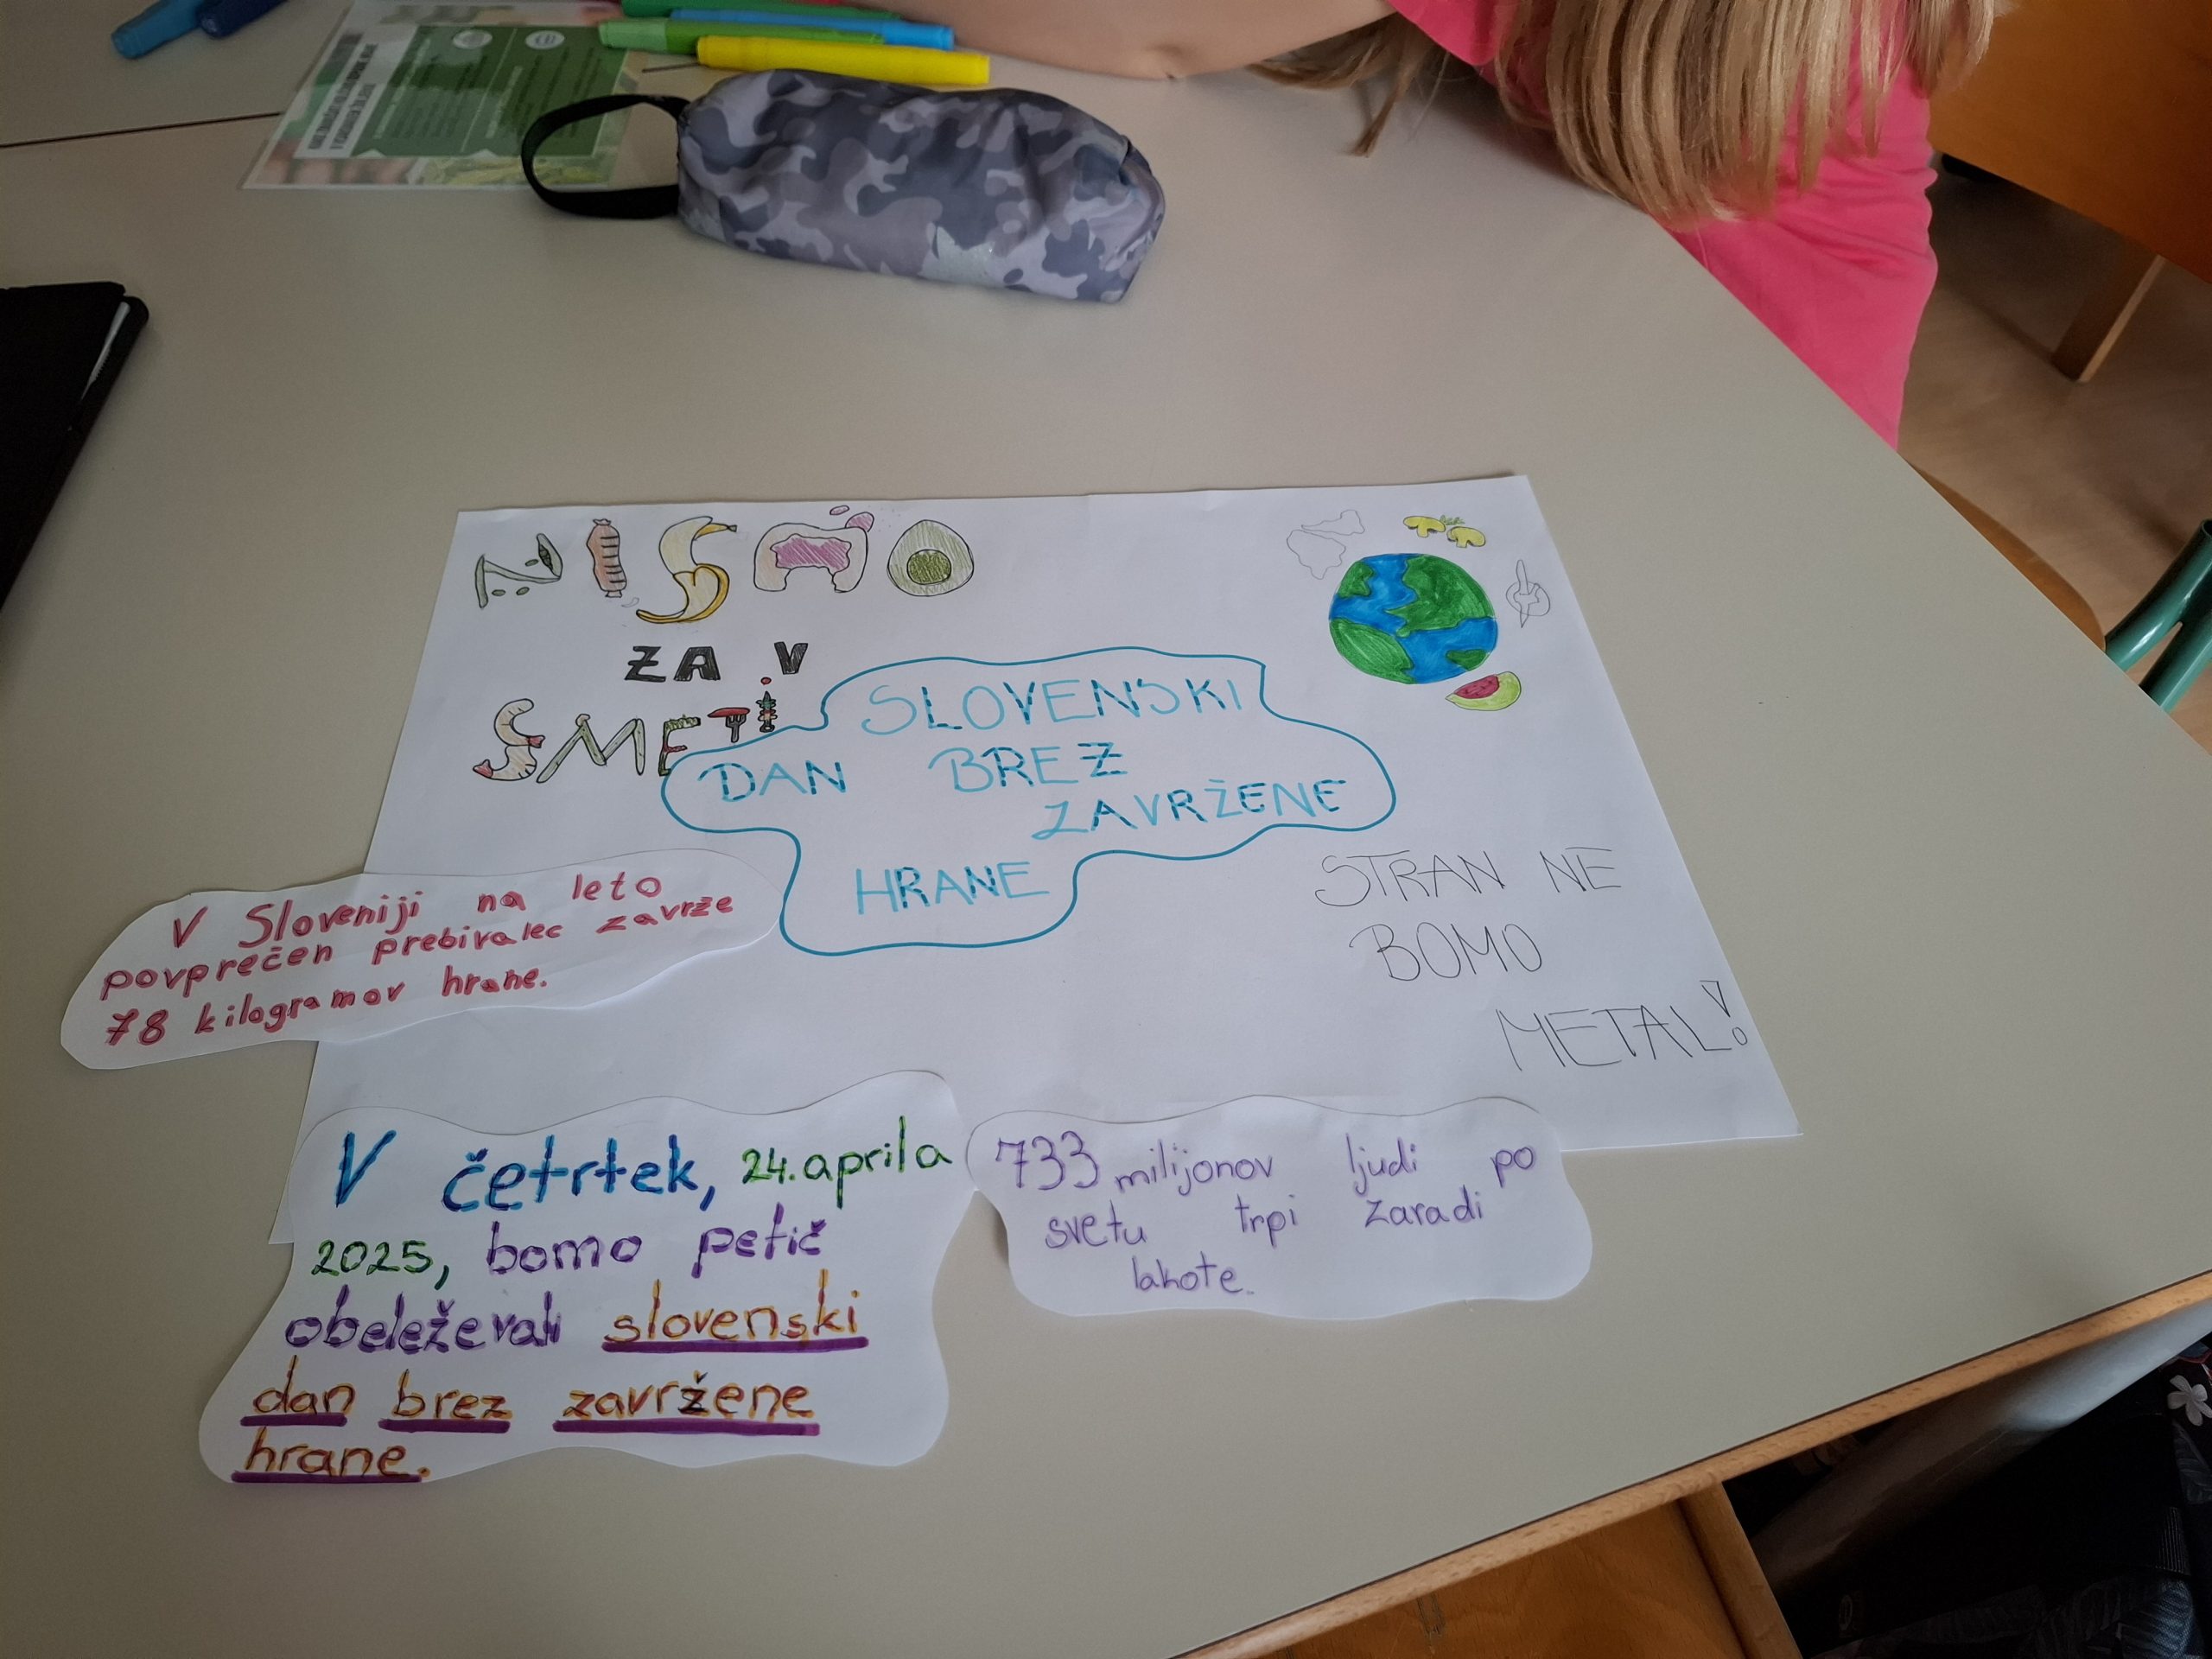 NISMO
ZA V
SMETi
SLOVENSKI
DAN BREZ
ZAVRŽENE
HRANE
STRAN NE
BOMO
METAL!
V Sloveniji na leto
povprečen prebivalec zavrže
78 kilogramov hrane.
V četrtek, 24. aprila
2025, bomo petič
obeleževali slovenski
dan brez zavržene
hrane.
733 milijonov ljudi po
svetu trpi zaradi
lakote.